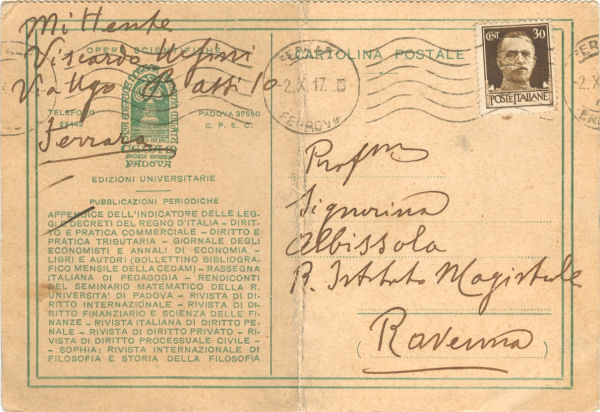 Mittente
Viscardo
Via Ugo Bassi 10
Ferrara
OPERE SCIENTIFICHE
TELEFONO
PADOVA
C. P. E. C.
PADOVA
EDIZIONI UNIVERSITARIE
PUBBLICAZIONI PERIODICHE
APPENDICE DELL'INDICATORE DELLE LEG-
GI E DECRETI DEL REGNO D'ITALIA - DIRIT-
TO E PRATICA COMMERCIALE - DIRITTO E
PRATICA TRIBUTARIA - GIORNALE DEGLI
ECONOMISTI E ANNALI DI ECONOMIA -
LIBRI E AUTORI (BOLLETTINO BIBLIOGRA-
FICO MENSILE DELLA CEDAM) - RASSEGNA
ITALIANA DI PEDAGOGIA - RENDICONTI
DEL SEMINARIO MATEMATICO DELLA R.
UNIVERSITA' DI PADOVA - RIVISTA DI DI-
RITTO INTERNAZIONALE - RIVISTA DI DI-
RITTO FINANZIARIO E SCIENZA DELLE FI-
NANZE - RIVISTA ITALIANA DI DIRITTO PE-
NALE - RIVISTA DI DIRITTO PRIVATO - RI-
VISTA DI DIRITTO PROCESSUALE CIVILE -
- SOPHIA: RIVISTA INTERNAZIONALE DI
FILOSOFIA E STORIA DELLA FILOSOFIA
CARTOLINA POSTALE
2.X.17.
FERROVIA
CENT. 30
POSTE ITALIANE
Prof
Signorina
Albissola
R. Istituto Magistrale
(Ravenna)